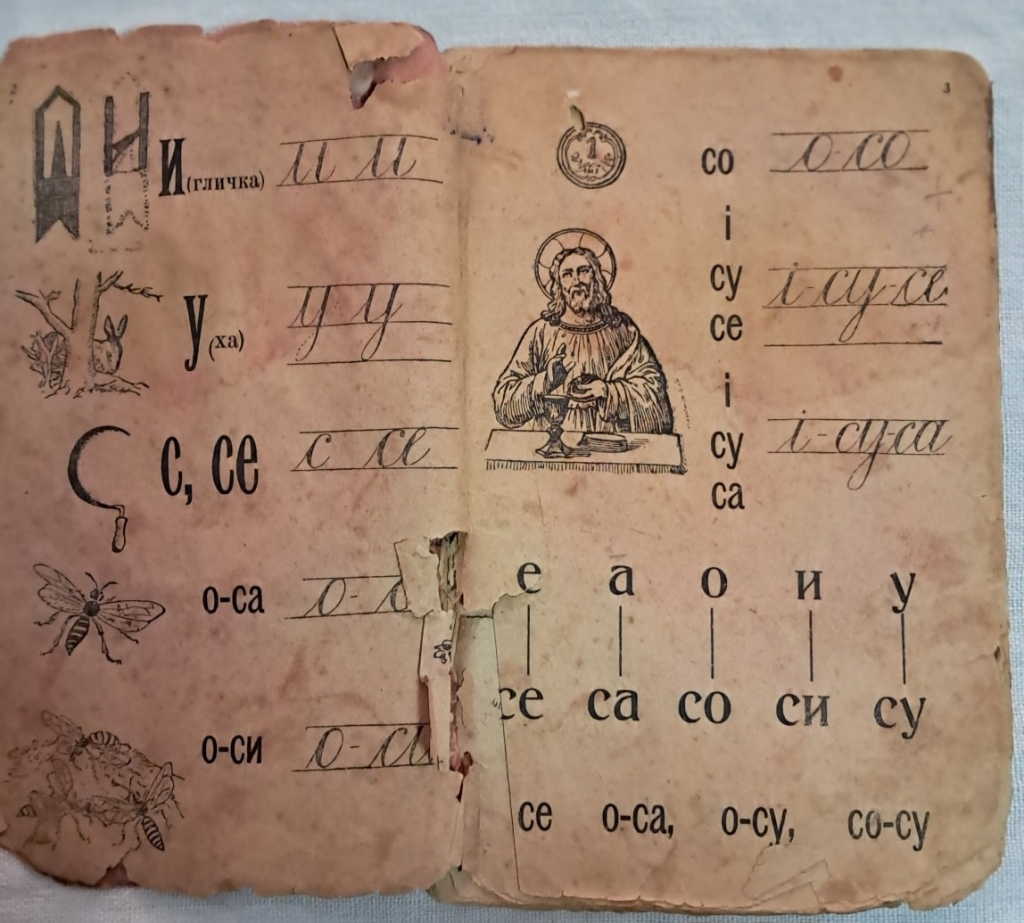 2
И (гличка) и и
У (ха) у у
С, се с се
о-са
о-си о-си
3
1
со о-со
і
су і-су-се
се
і
су і-су-са
са
е а о и у
се са со си су
се о-са, о-су, со-су